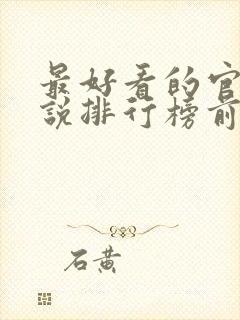 最好看的官
说排行榜前
石黄